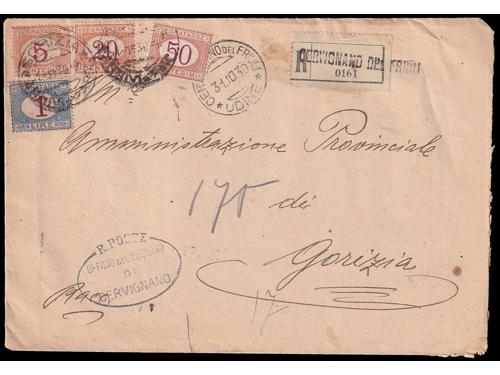 SEGNATASSE SEGNATASSE SEGNATASSE
5 20 50
1
LIRE
CERVIGNANO DEL FRIULI
31.10.30
* UDINE *
R CERVIGNANO DEL FRIULI
0161
Amministrazione Provinciale
175
di
Gorizia
R. POSTE
UFFICIO DEL REGISTRO
DI
CERVIGNANO
Racc
17